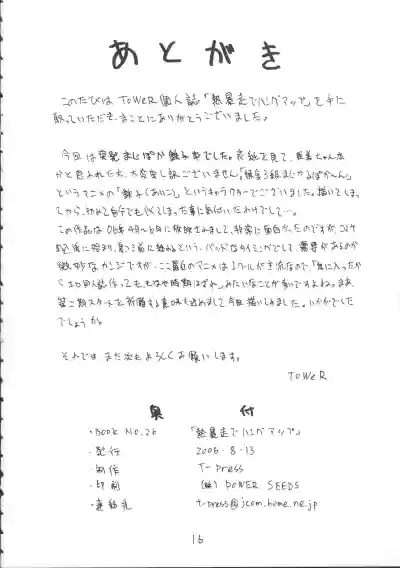 あとがき
このたびは ToWeR個人誌「熱暴走でハングアップ」を手に
取っていただき、まことにありがとうございました。
今回は
本でした。表紙を見て、
かと思われた方、大変申し訳ございません。
というアニメの
というキャラクターでございました。描いてしまっ
てから、初めて自分でも似てしまった事に気付いたわけでして…。
この作品は06年4月〜6月に放映されまして、非常に面白かったのですが、コミケ
という、バッドなタイミングでして、需要があるのか
微妙なカンジですが、ここ最近のアニメは1クールが主流なので、「気に入ったか
らと同人誌作っても、もはや時期はずれ」みたいなことが多いですよね。まあ、
第二期スタートを祈願する意味も込めまして今回描いてみました。いかがでした
でしょうか。
それでは また次もよろしくお願いします。
ToWeR
奥 付
・BOOK No.26 「熱暴走でハングアップ」
・発行 2006・8・13
・制作 T-press
・印刷 (株) POWER SEEDS
・連絡先 t-press@jcom.home.ne.jp
16